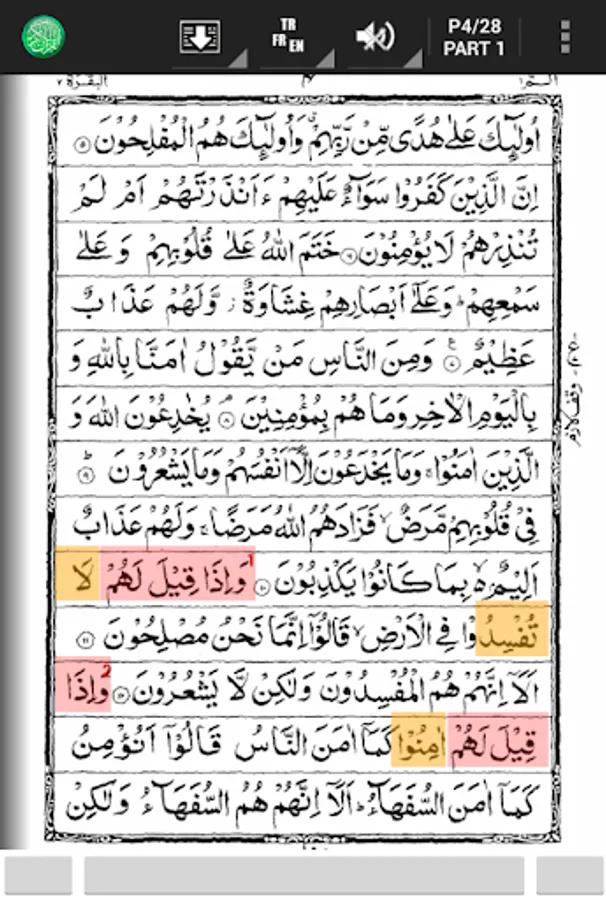 TR
FR EN
P4/28
PART 1
البقرة ٢
الٓمّٓ ١
اُولٰٓئِكَ عَلٰى هُدًى مِّنْ رَّبِّهِمْ ۙ وَاُولٰٓئِكَ هُمُ الْمُفْلِحُوْنَ ۝٥
اِنَّ الَّذِيْنَ كَفَرُوْا سَوَآءٌ عَلَيْهِمْ ءَاَنْذَرْتَهُمْ اَمْ لَمْ
تُنْذِرْهُمْ لَا يُؤْمِنُوْنَ ۝٦ خَتَمَ اللّٰهُ عَلٰى قُلُوْبِهِمْ وَ عَلٰى
سَمْعِهِمْ ؕ وَعَلٰٓى اَبْصَارِهِمْ غِشَاوَةٌ ؗ وَّلَهُمْ عَذَابٌ
عَظِيْمٌ ۝٧ ع وَمِنَ النَّاسِ مَنْ يَّقُوْلُ اٰمَنَّا بِاللّٰهِ وَ
بِالْيَوْمِ الْاٰخِرِ وَمَا هُمْ بِمُؤْمِنِيْنَ ۘ ۝٨ يُخٰدِعُوْنَ اللّٰهَ وَ
الَّذِيْنَ اٰمَنُوْا ۚ وَمَا يَخْدَعُوْنَ اِلَّآ اَنْفُسَهُمْ وَمَا يَشْعُرُوْنَ ؕ ۝٩
فِيْ قُلُوْبِهِمْ مَّرَضٌ ۙ فَزَادَهُمُ اللّٰهُ مَرَضًا ۚ وَلَهُمْ عَذَابٌ
اَلِيْمٌ ۢ ۙ بِمَا كَانُوْا يَكْذِبُوْنَ ۝١٠ وَاِذَا قِيْلَ لَهُمْ 1 لَا
تُفْسِدُوْا فِي الْاَرْضِ ۙ قَالُوْٓا اِنَّمَا نَحْنُ مُصْلِحُوْنَ ۝١١
اَلَآ اِنَّهُمْ هُمُ الْمُفْسِدُوْنَ وَلٰكِنْ لَّا يَشْعُرُوْنَ ۝١٢ وَاِذَا 2
قِيْلَ لَهُمْ اٰمِنُوْا كَمَآ اٰمَنَ النَّاسُ قَالُوْٓا اَنُؤْمِنُ
كَمَآ اٰمَنَ السُّفَهَآءُ ؕ اَلَآ اِنَّهُمْ هُمُ السُّفَهَآءُ وَلٰكِنْ